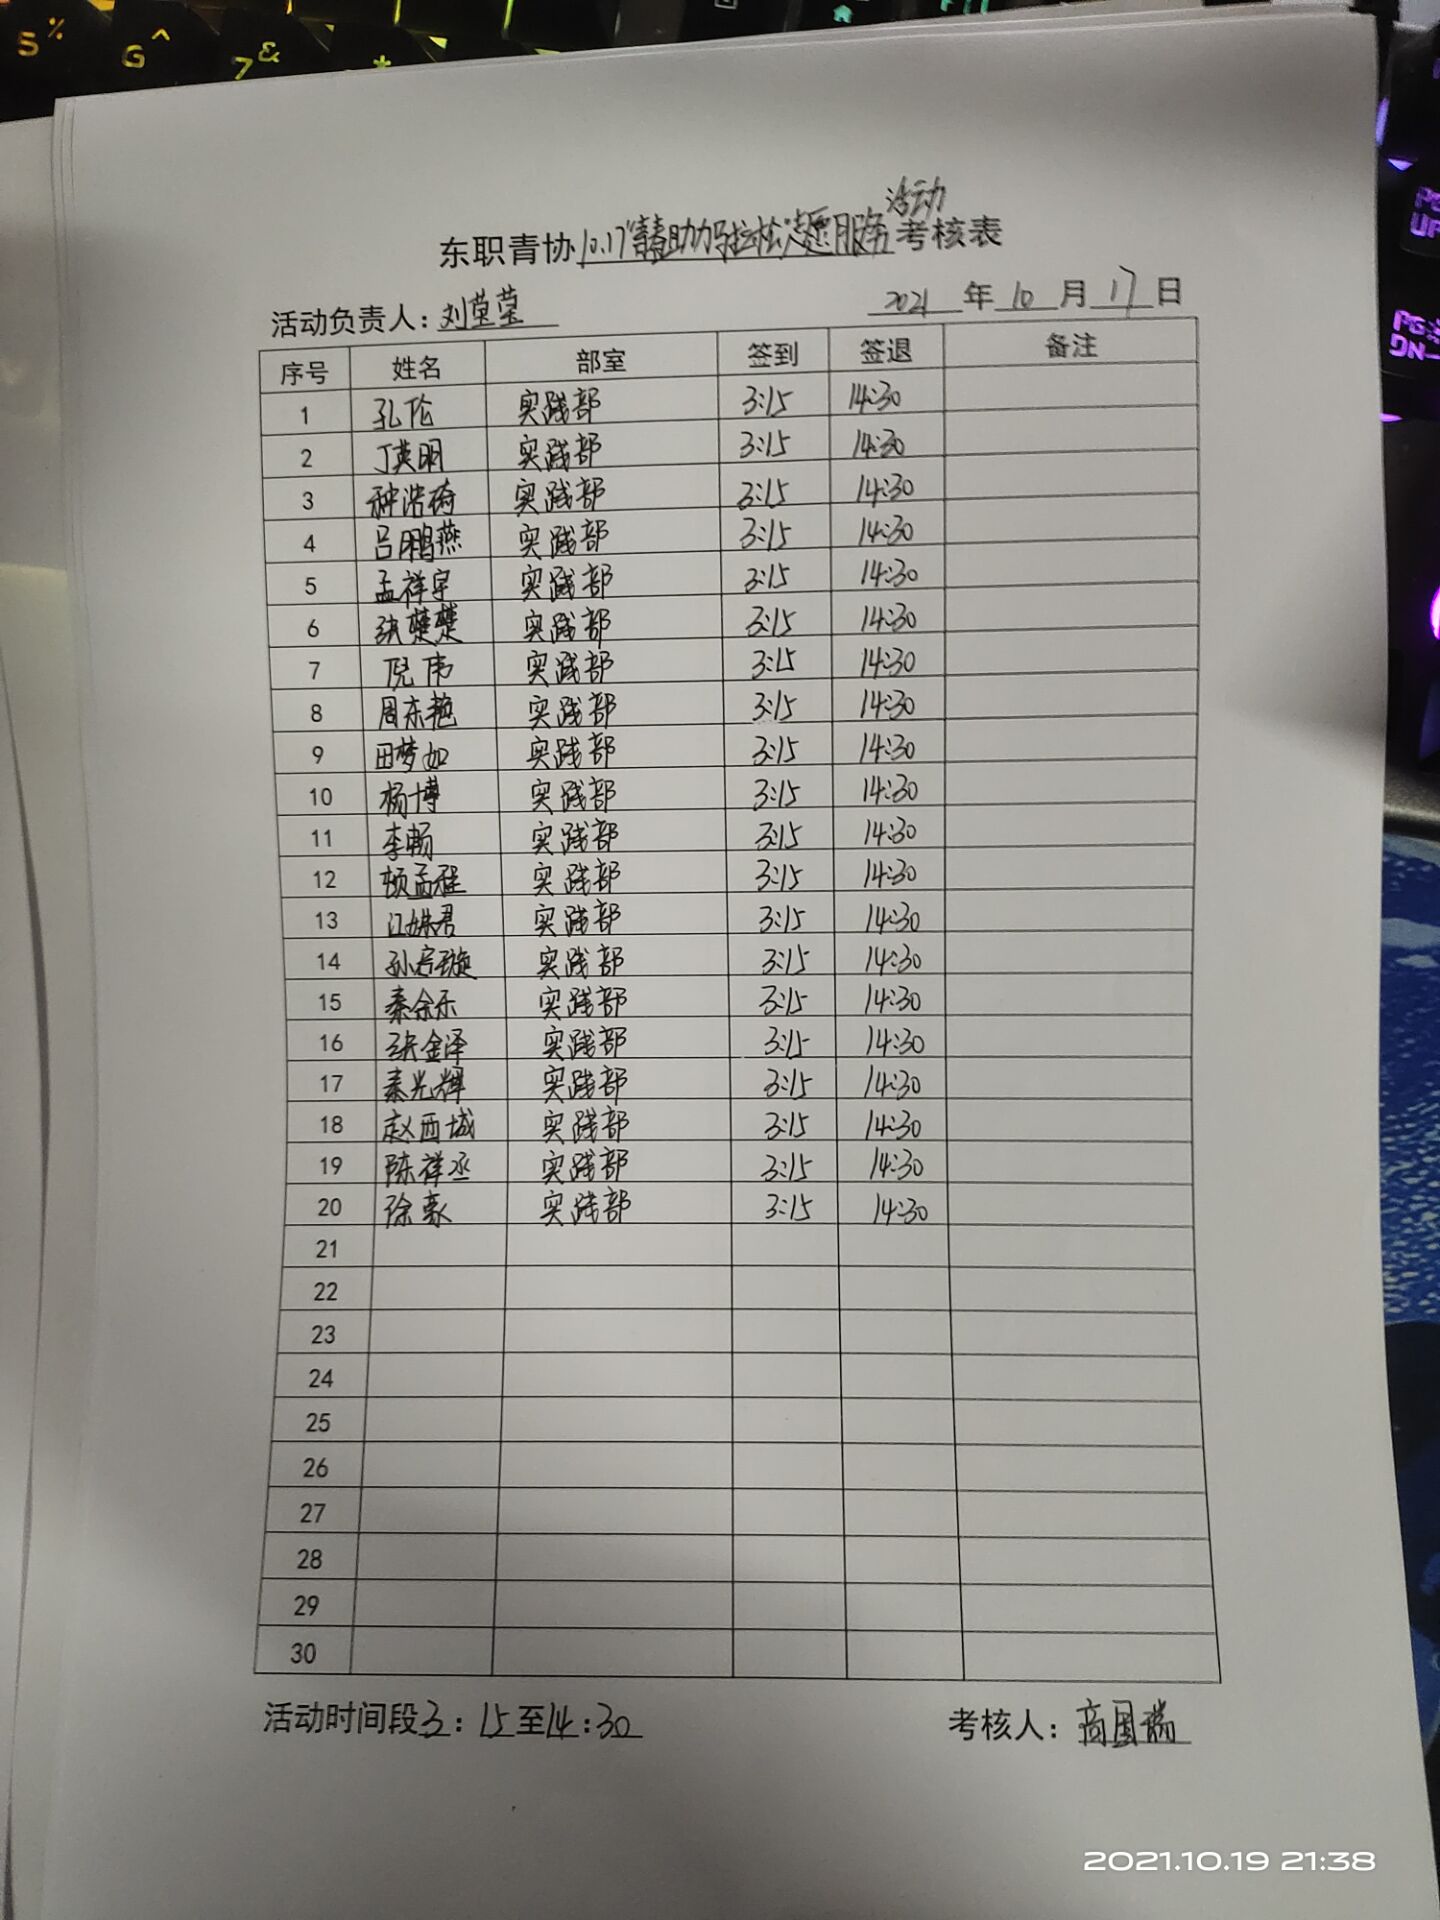 5 %
G ^
7 &
*
活动
东职青协10.17"青春助力马拉松"志愿服务考核表
活动负责人：刘莹莹 2021年10月17日
序号 姓名 部室 签到 签退 备注
1 孔伦 实践部 3:15 14:30
2 丁英明 实践部 3:15 14:30
3 种浩琦 实践部 3:15 14:30
4 吕鹏燕 实践部 3:15 14:30
5 孟祥宇 实践部 3:15 14:30
6 张楚楚 实践部 3:15 14:30
7 倪伟 实践部 3:15 14:30
8 周东艳 实践部 3:15 14:30
9 田梦如 实践部 3:15 14:30
10 杨博 实践部 3:15 14:30
11 李畅 实践部 3:15 14:30
12 顿孟程 实践部 3:15 14:30
13 江姝君 实践部 3:15 14:30
14 实践部 3:15 14:30
15 秦余乐 实践部 3:15 14:30
16 张金泽 实践部 3:15 14:30
17 秦光辉 实践部 3:15 14:30
18 赵西城 实践部 3:15 14:30
19 陈祥丞 实践部 3:15 14:30
20 徐豪 实践部 3:15 14:30
21
22
23
24
25
26
27
28
29
30
活动时间段3：15至14：30 考核人：商国瑞
2021.10.19 21:38